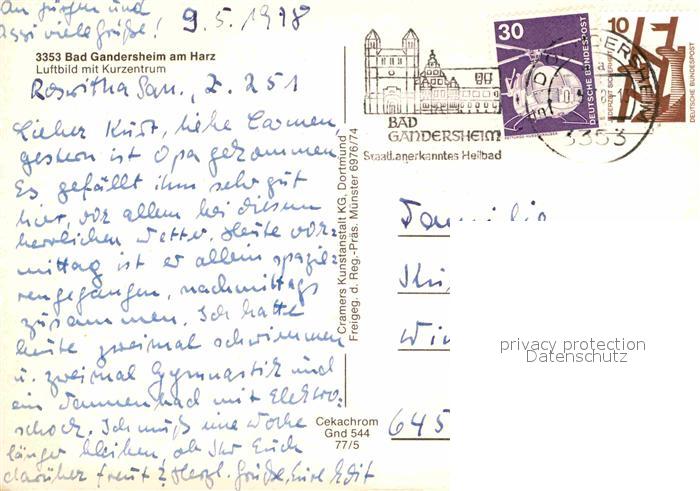 An Jürgen und
viele Grüße! 9.5.1978
3353 Bad Gandersheim am Harz
Luftbild mit Kurzentrum
Roswitha San., Z. 251
Lieber Kurt, liebe Carmen,
gestern ist Opa gekommen.
Es gefällt ihm sehr gut
hier, vor allem bei diesem
herrlichen Wetter. Heute vor-
mittag ist er allein spazie-
rengegangen, nachmittags
zusammen. Ich hatte
heute zweimal schwimmen
u. zweimal Gymnastik und
ein Tannenbad mit Elektro-
schock. Ich muß eine Woche
länger bleiben, ob Ihr Euch
darüber freut? Herzl. Grüße, Eure Edit
Cramers Kunstanstalt KG, Dortmund
Freigeg. d. Reg.-Präs. Münster 6976/74
Cekachrom
Gnd 544
77/5
BAD
GANDERSHEIM
Staatl. anerkanntes Heilbad
30
DEUTSCHE BUNDESPOST
10
JEDERZEIT SICHERHEIT
DEUTSCHE BUNDESPOST
3353
Familie
645
privacy protection
Datenschutz